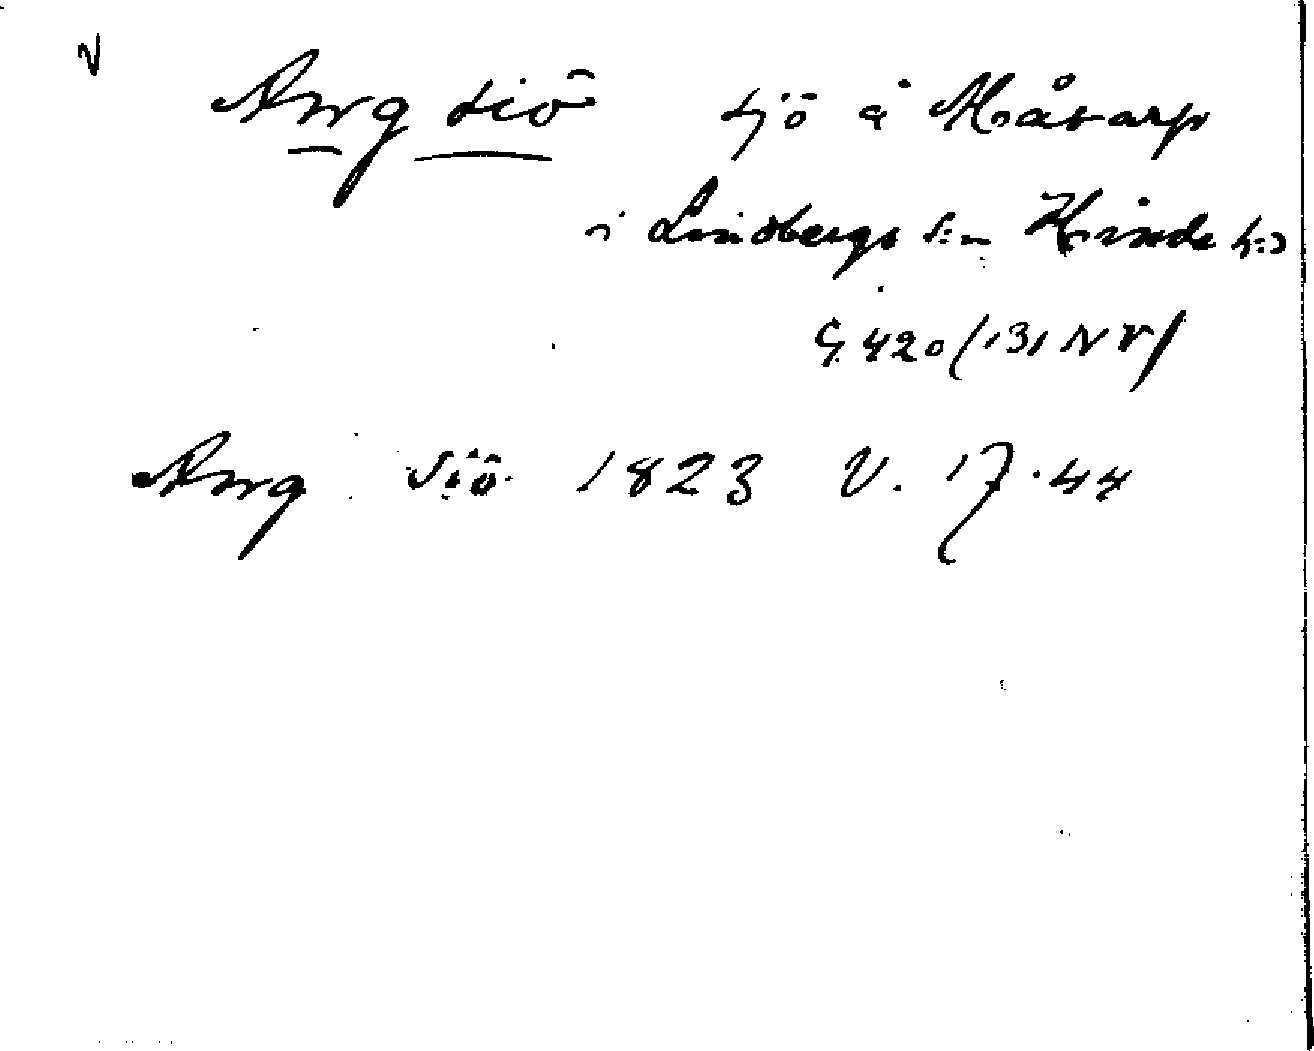 v
Arrg siö sjö å Måsarp
i Lindbergs s:n Kinds h:d
G 420 (131 NV)
Arrg Siö 1823 V. 17.44